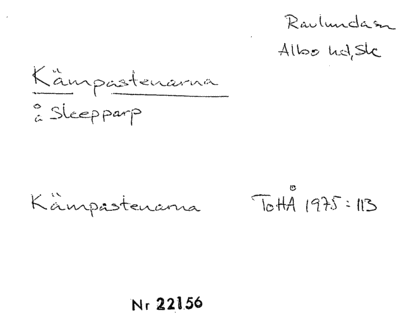 Ravlunda sn
Albo hd, Sk
Kämpastenarna
å Skepparp
Kämpastenarna ToHÅ 1975:113
Nr 22156